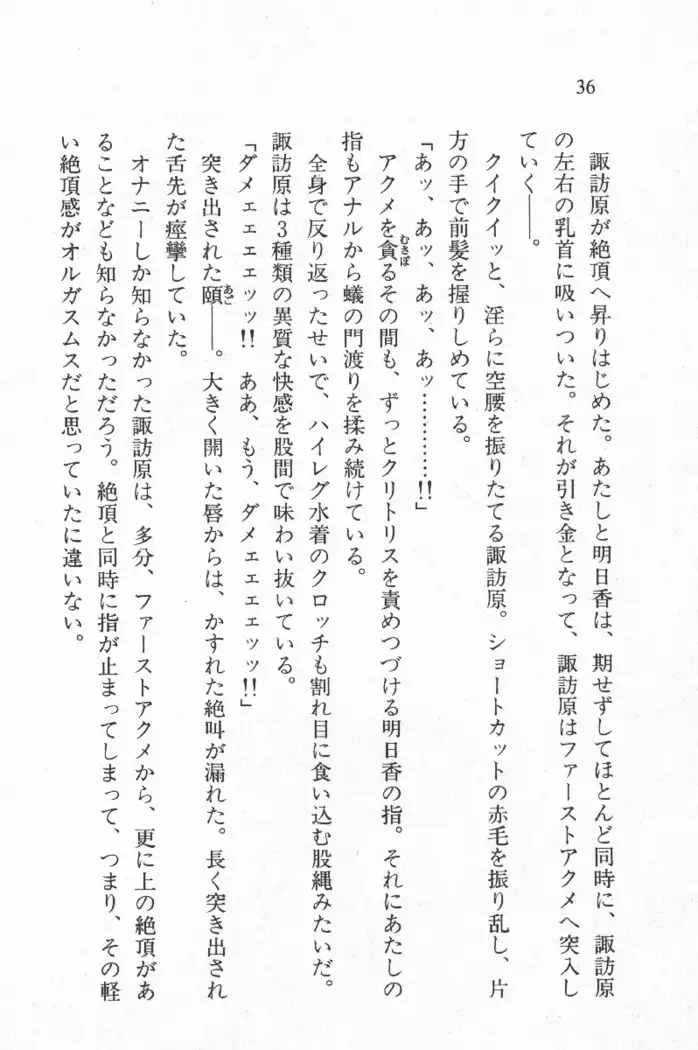 36
諏訪原が絶頂へ昇りはじめた。あたしと明日香は、期せずしてほとんど同時に、諏訪原
の左右の乳首に吸いついた。それが引き金となって、諏訪原はファーストアクメへ突入し
ていく――。
クイクイッと、淫らに空腰を振りたてる諏訪原。ショートカットの赤毛を振り乱し、片
方の手で前髪を握りしめている。
「あッ、あッ、あッ、あッ…………!!」
アクメを貪るその間も、ずっとクリトリスを責めつづける明日香の指。それにあたしの
指もアナルから蟻の門渡りを揉み続けている。
全身で反り返ったせいで、ハイレグ水着のクロッチも割れ目に食い込む股縄みたいだ。
諏訪原は3種類の異質な快感を股間で味わい抜いている。
「ダメェェェェッッ!! ああ、もう、ダメェェェェッッ!!」
突き出された頤――。大きく開いた唇からは、かすれた絶叫が漏れた。長く突き出され
た舌先が痙攣していた。
オナニーしか知らなかった諏訪原は、多分、ファーストアクメから、更に上の絶頂があ
ることなども知らなかっただろう。絶頂と同時に指が止まってしまって、つまり、その軽
い絶頂感がオルガスムスだと思っていたに違いない。